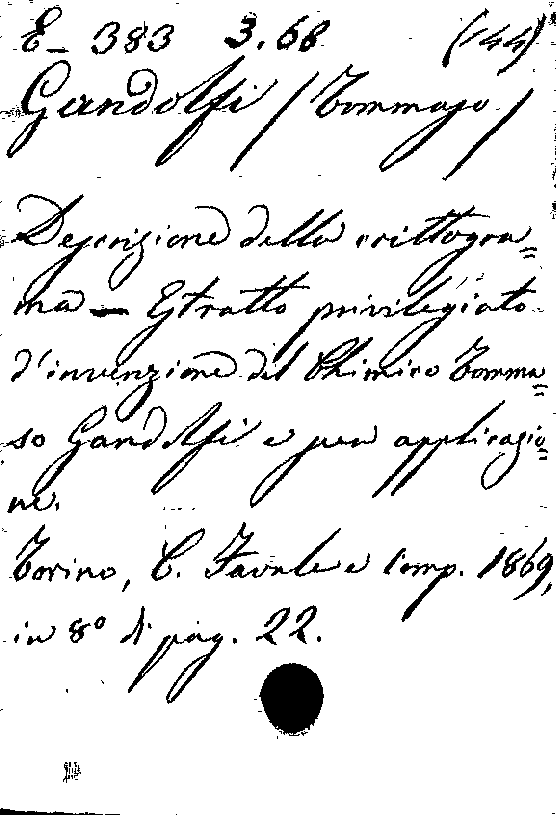 E_ 383 3.68 (144)
Gandolfi (Tommaso)
Descrizione della crittogra=
ma — Estratto privilegiato
d'invenzione del Chimico Tomma=
so Gandolfi e sua applicazio=
ne.
Torino, C. Favale e Comp. 1869,
in 8º di pag. 22.